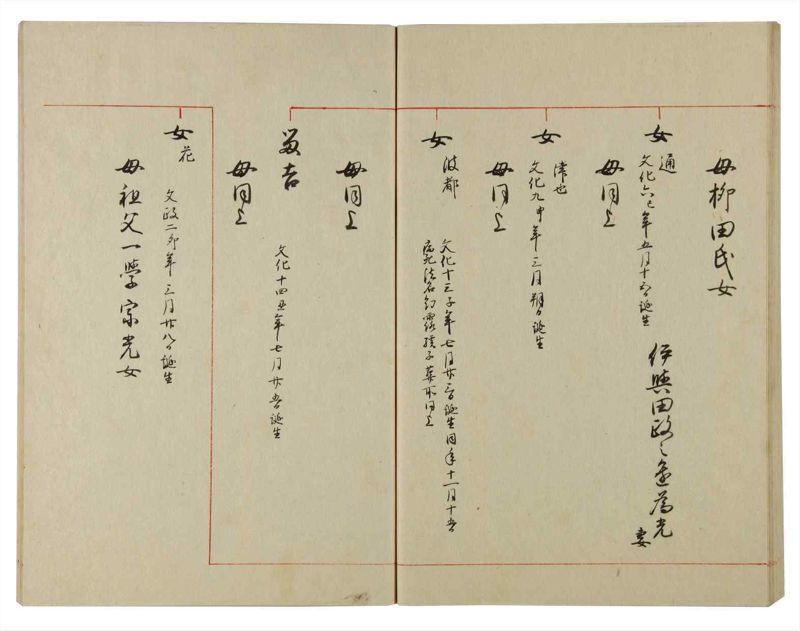 母柳田氏女
女
通
文化六巳年五月十六日誕生
伊與田政之進為光
妻
母同上
女
津也
文化九申年三月朔日誕生
母同上
女
波都
文化十三子年七月廿三日誕生同年十一月十五日
病死法名幻露孩子葬所同上
母同上
留吉
文化十四丑年七月廿五日誕生
母同上
女
花
文政二卯年三月廿八日誕生
母祖父一學宗光女